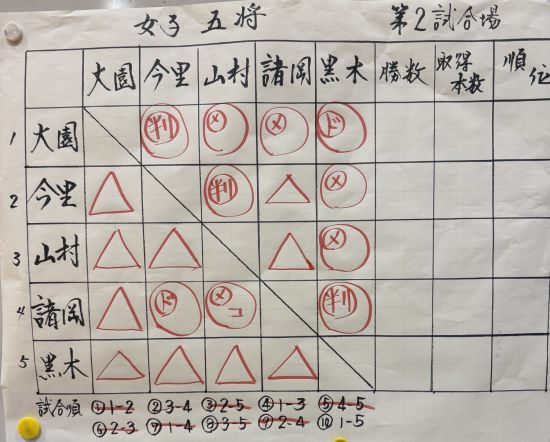 女子 五将 第2試合場
大園 今里 山村 諸岡 黒木 勝数 取得本数 順位
1 大園 判 メ メ ド
2 今里 △ 判 △ メ
3 山村 △ △ △ メ
4 諸岡 △ ド メコ 判
5 黒木 △ △ △ △
試合順 ①1-2 ②3-4 ③2-5 ④1-3 ⑤4-5
⑥2-3 ⑦1-4 ⑧3-5 ⑨2-4 ⑩1-5